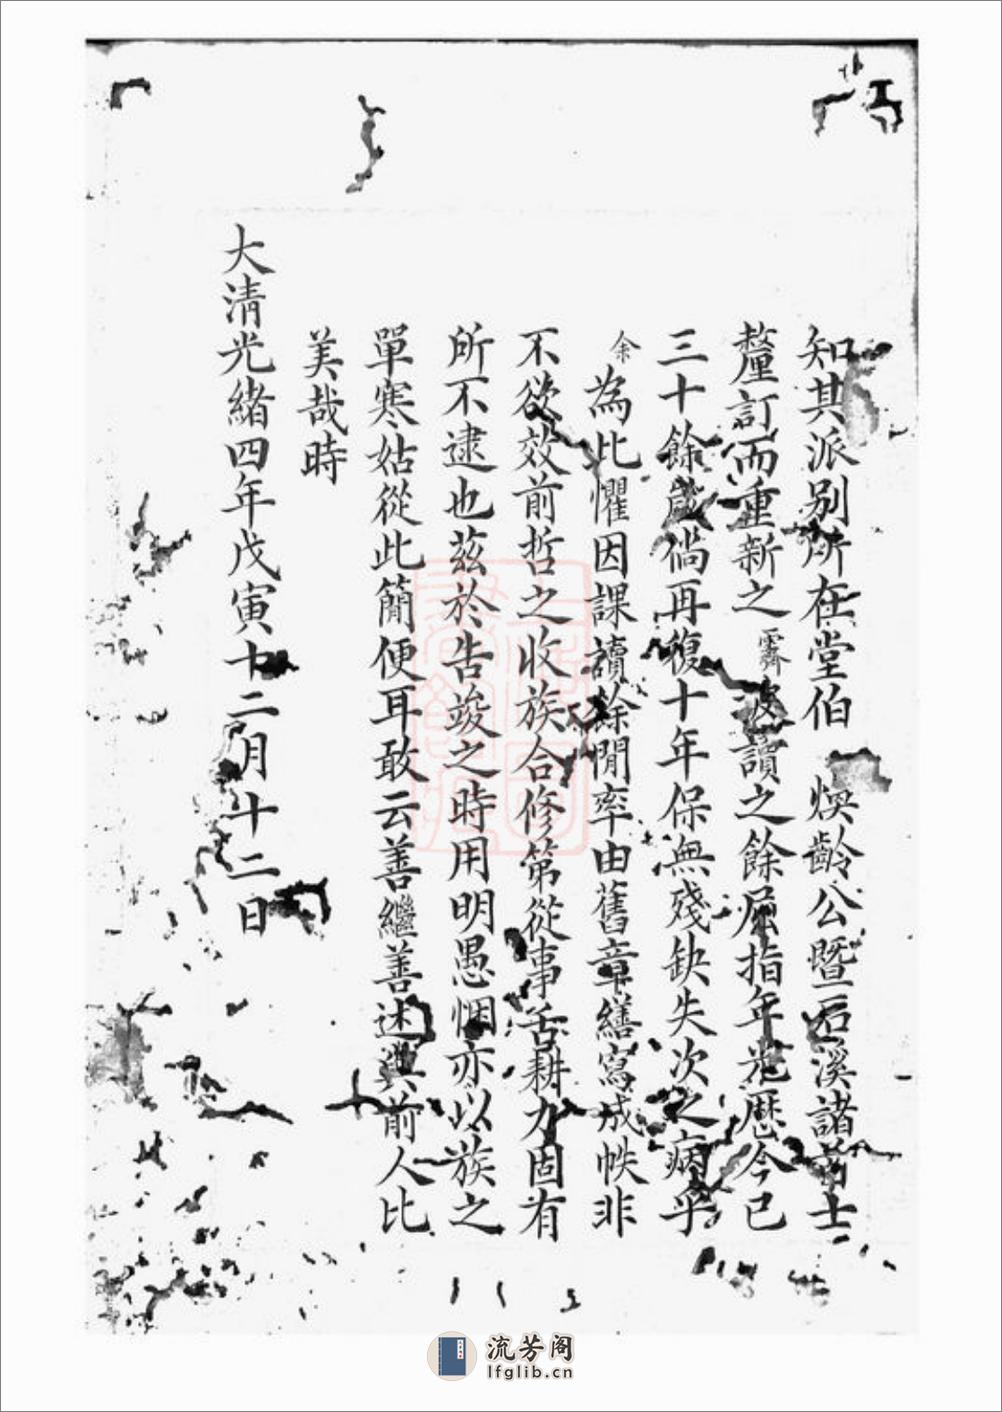 知其派别所在堂伯 煥齡公暨石溪諸前士
釐訂而重新之霽披讀之餘屈指年光歷今已
三十餘歲倘再復十年保無殘缺失次之病乎
余為此懼因課讀餘閒率由舊章繕寫成帙非
不欲效前哲之收族合修第從事舌耕力固有
所不逮也茲於告竣之時用明愚悃亦以族之
單寒姑從此簡便耳敢云善繼善述與前人比
美哉時
大清光緒四年戊寅十二月十二日
流芳阁
lfglib.cn